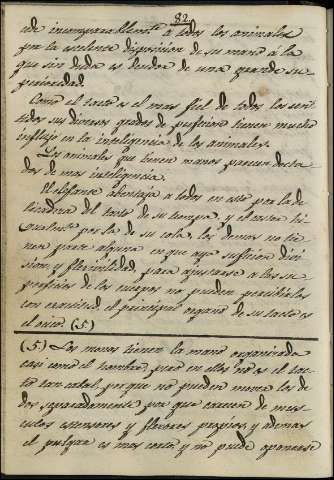 82
ede incomparablemte a todos los animales
por la exelente disposicion de su mano á la
que sin duda es deudor de una grande su-
perioridad.
Como el tacto es el mas fiel de todos los sen-
tidos sus diversos grados de perfeccion tienen mucho
influjo en la inteligencia de los animales.
Los animales que tienen manos parecen dota-
dos de mas inteligencia.
El elefante abentaja a todos en esto por la de-
licadeza del tacto de su trompa, y el castor
por la de su cola, los demas no tie-
nen parte alguna en que aya suficien divi-
sion y flexivilidad, para ajustarse a las su-
perficies de los cuerpos no pueden percibirlos
con exactitud, el principal organo de su tacto es
el osico. (5)
(5) Los monos tienen la mano organizada
casi como el hombre, pero en ellos no es el tac-
to tan cabal, porque no pueden mover los de-
dos separadamente por que carecen de mus-
culos estensores y flexores propios, y ademas
el pulgar es mas corto, y no puede oponerse